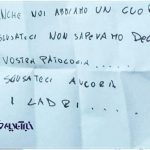 ANCHE NOI ABBIAMO UN CUOR
SCUSATECI NON SAPEVAMO DEL
VOSTRA PATOLOGIA....
SCUSATECI ANCORA
I LADRI....